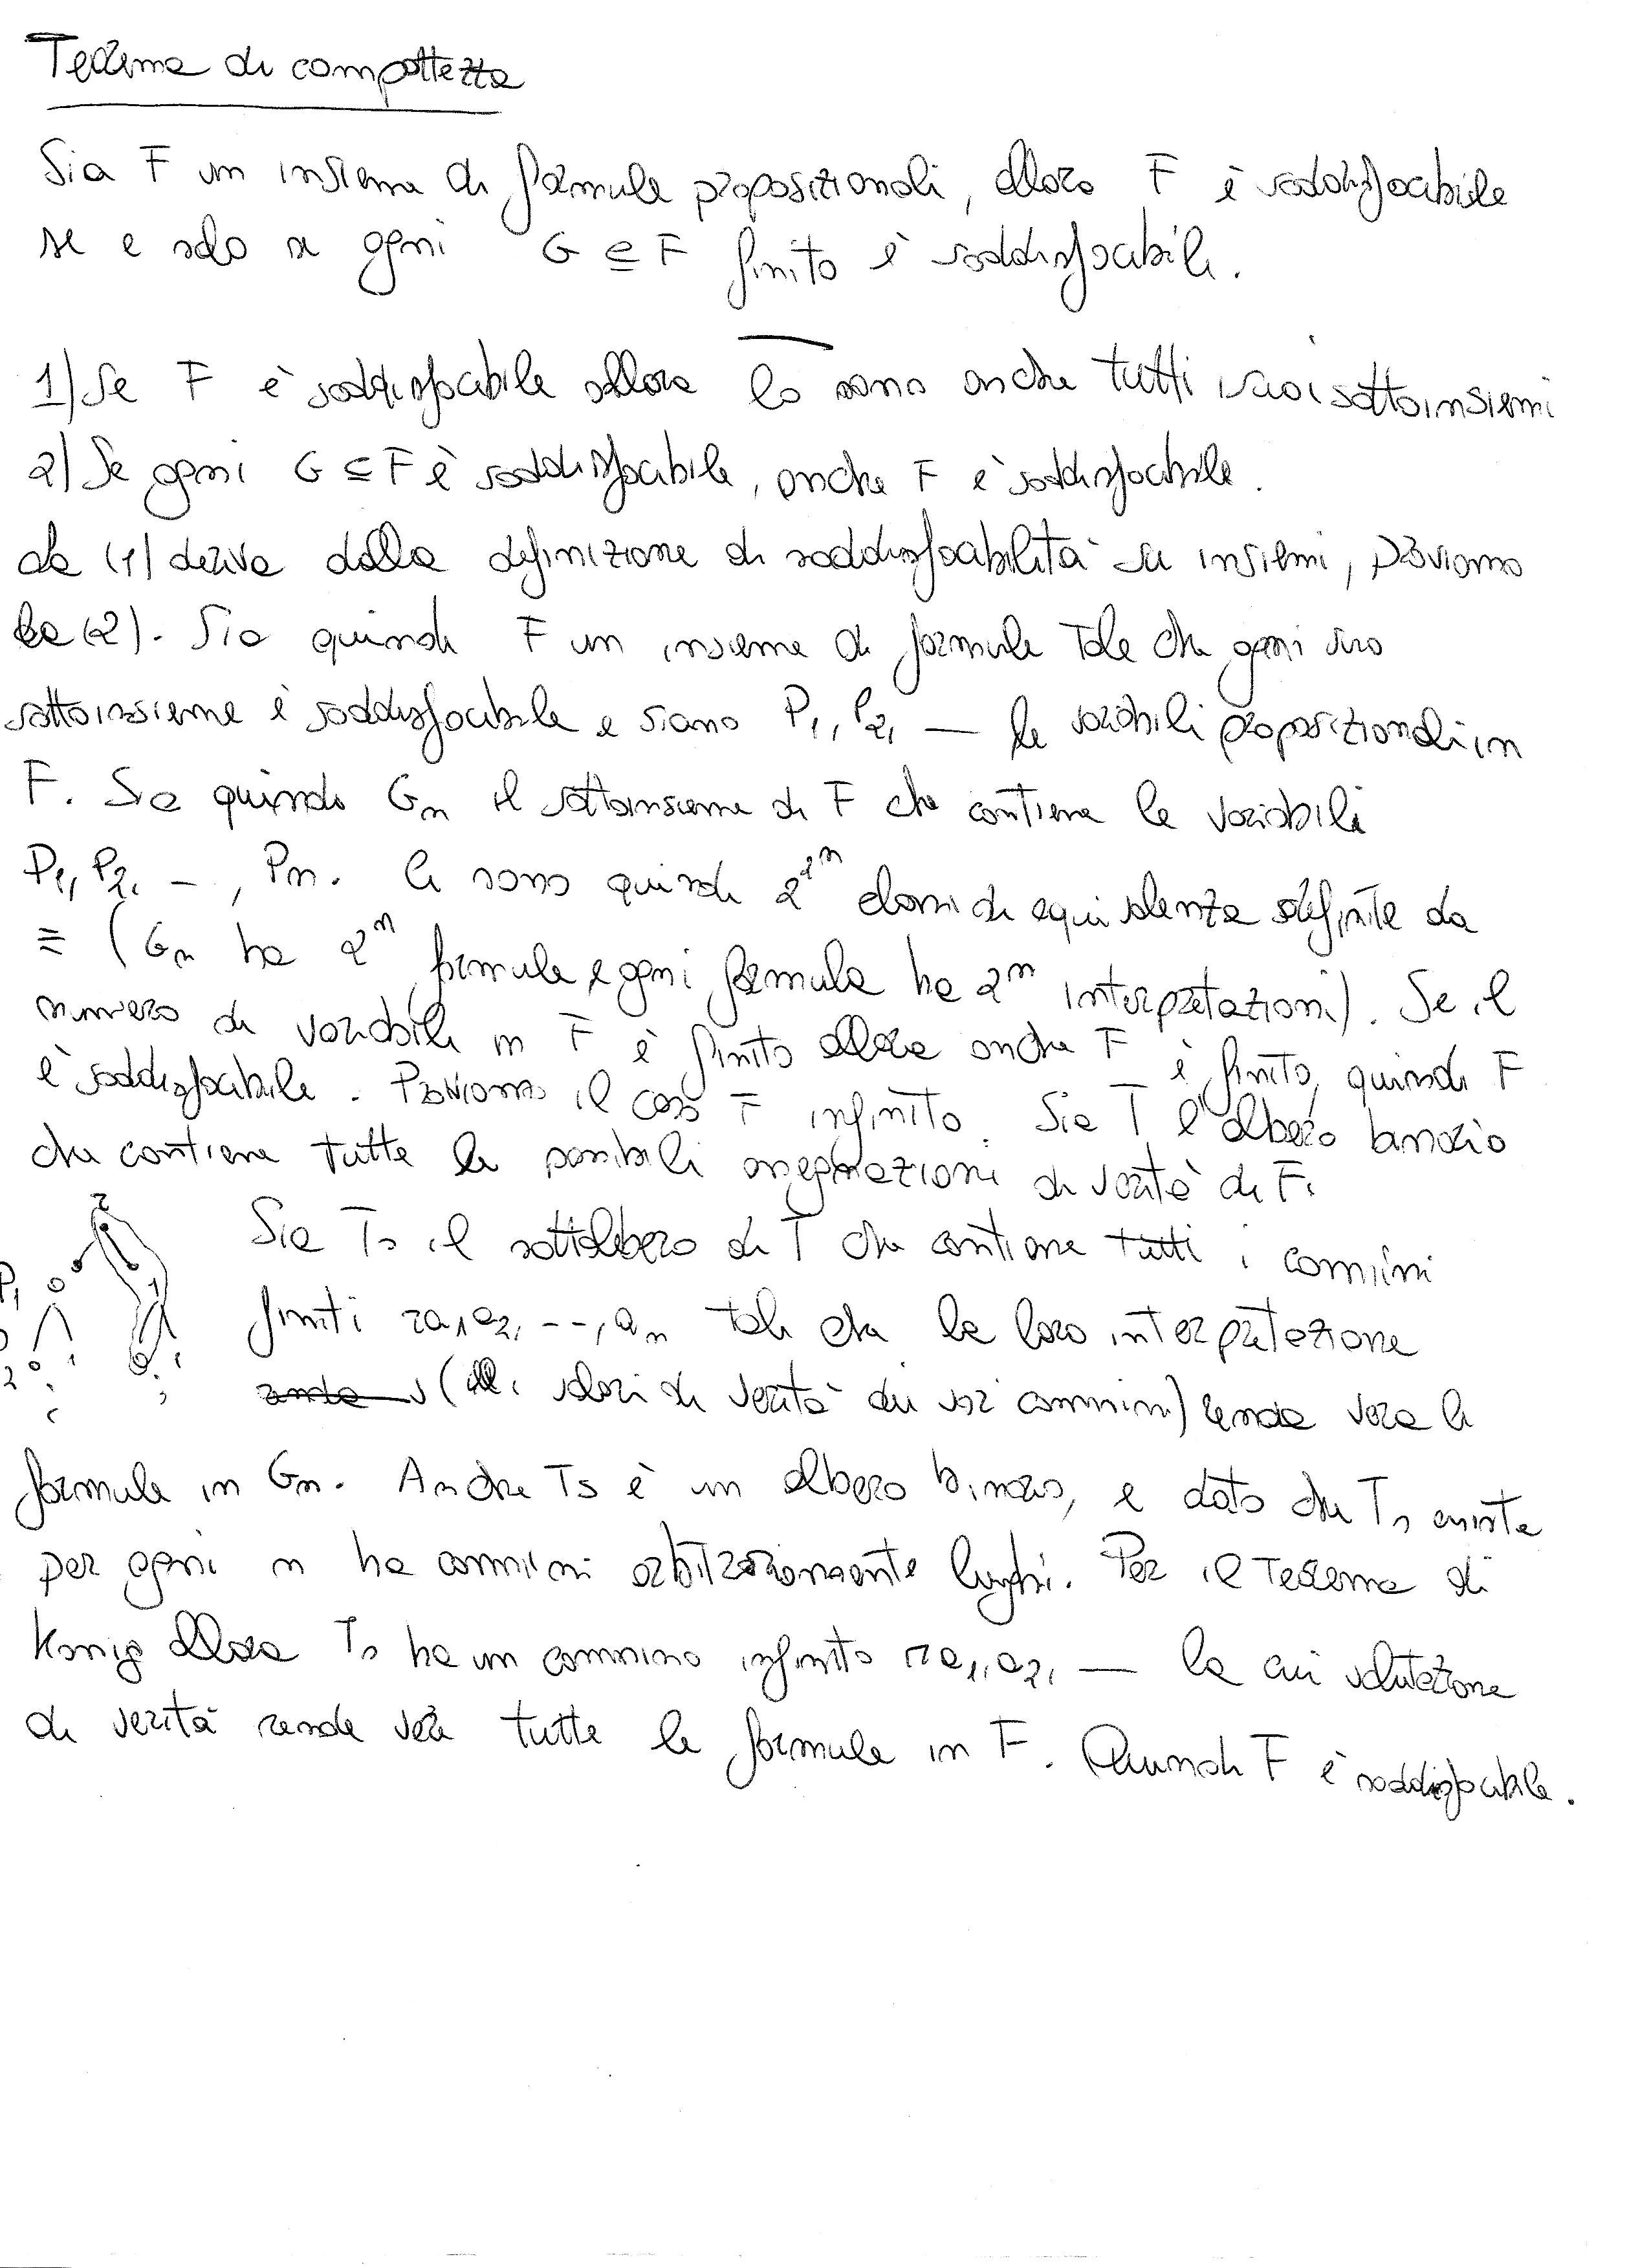 Teorema di compattezza
Sia F un insieme di formule proposizionali, allora F è soddisfacibile
se e solo se ogni G ⊆ F finito è soddisfacibile.
1) Se F è soddisfacibile allora lo sono anche tutti i suoi sottoinsiemi
2) Se ogni G ⊆ F è soddisfacibile, anche F è soddisfacibile.
la (1) deriva dalla definizione di soddisfacibilità su insiemi, proviamo
la (2). Sia quindi F un insieme di formule tale che ogni suo
sottoinsieme è soddisfacibile e siano P1, P2, — le variabili proposizionali in
F. Sia quindi Gn il sottoinsieme di F che contiene le variabili
P1, P2, -, Pn. Ci sono quindi 2^2^n classi di equivalenza definite da
≡ (Gn ha 2^n formule e ogni formula ha 2^n interpretazioni). Se il
numero di variabili in F è finito allora anche F è finito, quindi F
è soddisfacibile. Proviamo il caso F infinito. Sia T l'albero binario
che contiene tutte le possibili assegnazioni di verità di F.
r
P1 0 1
2 0 1 0 1
Sia Ts il sottoalbero di T che contiene tutti i cammini
finiti ra1a2, --, an tali che la loro interpretazione
v ( i valori di verità dei cammini) rende vere le
formule in Gn. Anche Ts è un albero binario, e dato che Ts esiste
per ogni n ha cammini arbitrariamente lunghi. Per il teorema di
Konig allora Ts ha un cammino infinito ra1, a2, — la cui valutazione
di verità rende vere tutte le formule in F. Quindi F è soddisfacibile.